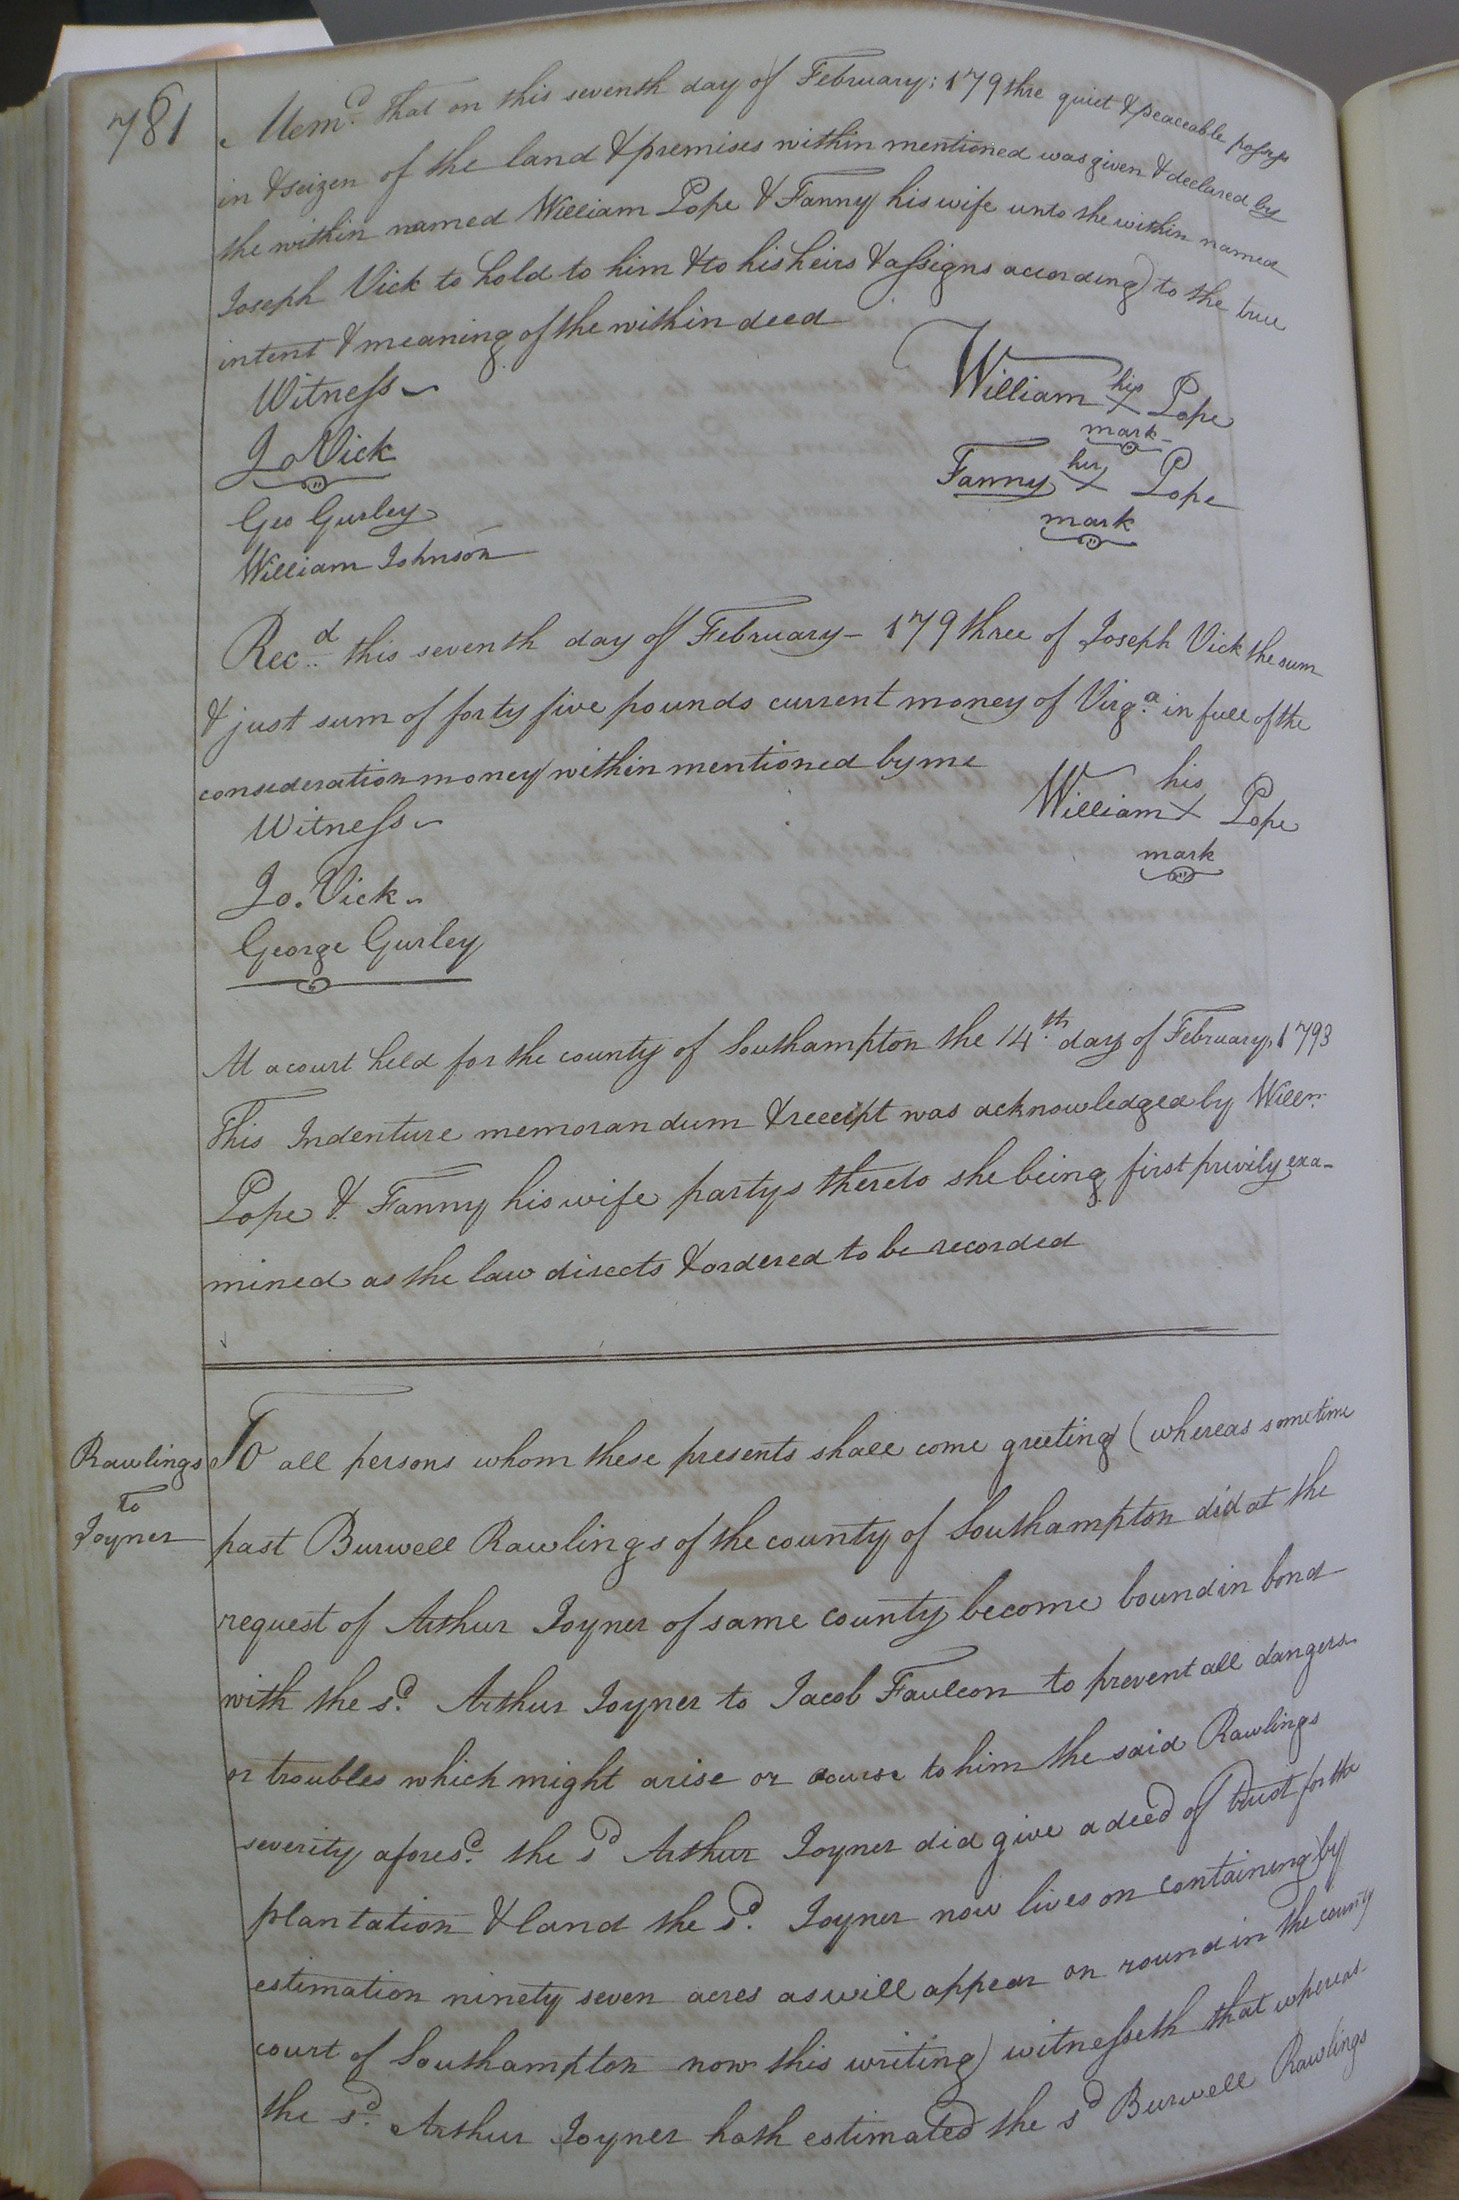 781
Mem.d That on this seventh day of February: 179 thre quiet & peaceable possess
in & seizen of the land & premises within mentioned was given & declared by
the within named William Pope & Fanny his wife unto the within named
Joseph Vick to hold to him & to his heirs & assigns according to the true
intent & meaning of the within deed
Witness
William his X Pope
mark
Jo Vick
Fanny her X Pope
mark
Geo Gurley
William Johnson
Rec.d this seventh day of February - 179 three of Joseph Vick the sum
& just sum of forty five pounds current money of Virg.a in full of the
consideration money within mentioned by me
Witness
his
William X Pope
mark
Jo. Vick
George Gurley
At a court held for the county of Southampton the 14.th day of February, 1793
This Indenture memorandum & receipt was acknowledged by Willm.
Pope & Fanny his wife partys thereto she being first privily exa-
mined as the law directs & ordered to be recorded
Rawlings
to
Joyner
To all persons whom these presents shall come greeting (whereas sometime
past Burwell Rawlings of the county of Southampton did at the
request of Arthur Joyner of same county become bound in bond
with the s.d Arthur Joyner to Jacob Faulcon to prevent all dangers
or troubles which might arise or to him the said Rawlings
severity afores.d the s.d Arthur Joyner did give a deed of trust for the
plantation & land the s.d Joyner now lives on containing by
estimation ninety seven acres as will appear on round in the county
court of Southampton now this writing) witnesseth that whereas
the s.d Arthur Joyner hath estimated the s.d Burwell Rawlings